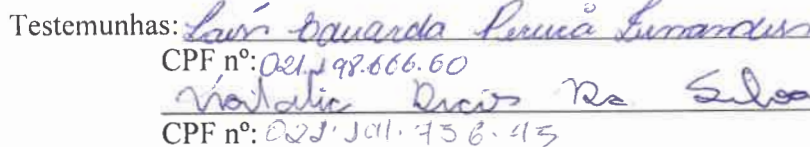 Testemunhas: Laís Eduarda Pereira Fernandes
CPF nº: 021.198.666.60
Da Silva
CPF nº: 021.101.756-45